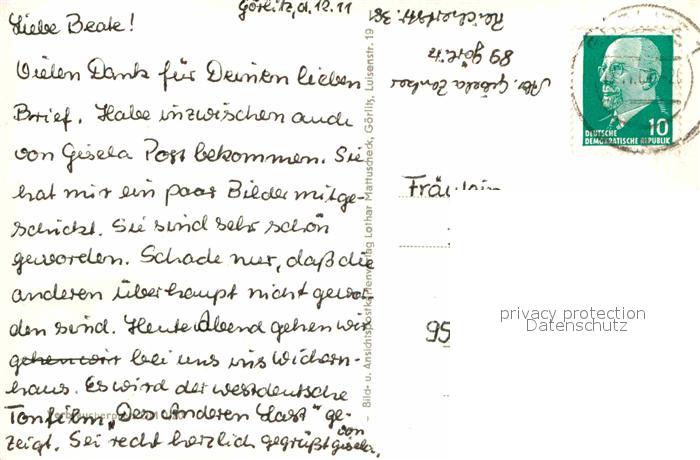 Görlitz, d. 12.11
Liebe Beate!
Vielen Dank für Deinen lieben
Brief. Habe inzwischen auch
von Gisela Post bekommen. Sie
hat mir ein paar Bilder mitge-
schickt. Sie sind sehr schön
geworden. Schade nur, daß die
anderen überhaupt nicht gewor-
den sind. Heute Abend gehen wir
gehen wir bei uns ins Wichern-
haus. Es wird der westdeutsche
Tonfilm „Des Anderen Last" ge-
zeigt. Sei recht herzlich gegrüßt von
Gisela.
Bild- u. Ansichtspostkartenverlag Lothar Mattuscheck, Görlitz, Luisenstr. 19
Abs. Gisela
89 Görlitz
DEUTSCHE
DEMOKRATISCHE REPUBLIK
10
Fräulein
95
privacy protection
Datenschutz